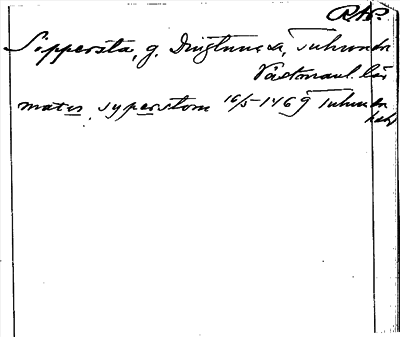 RAP.
Sippersta, g. Dingtuna s, Tuhundra
Västmanl. län
mates syperstom 16/5-1469 Tuhundra